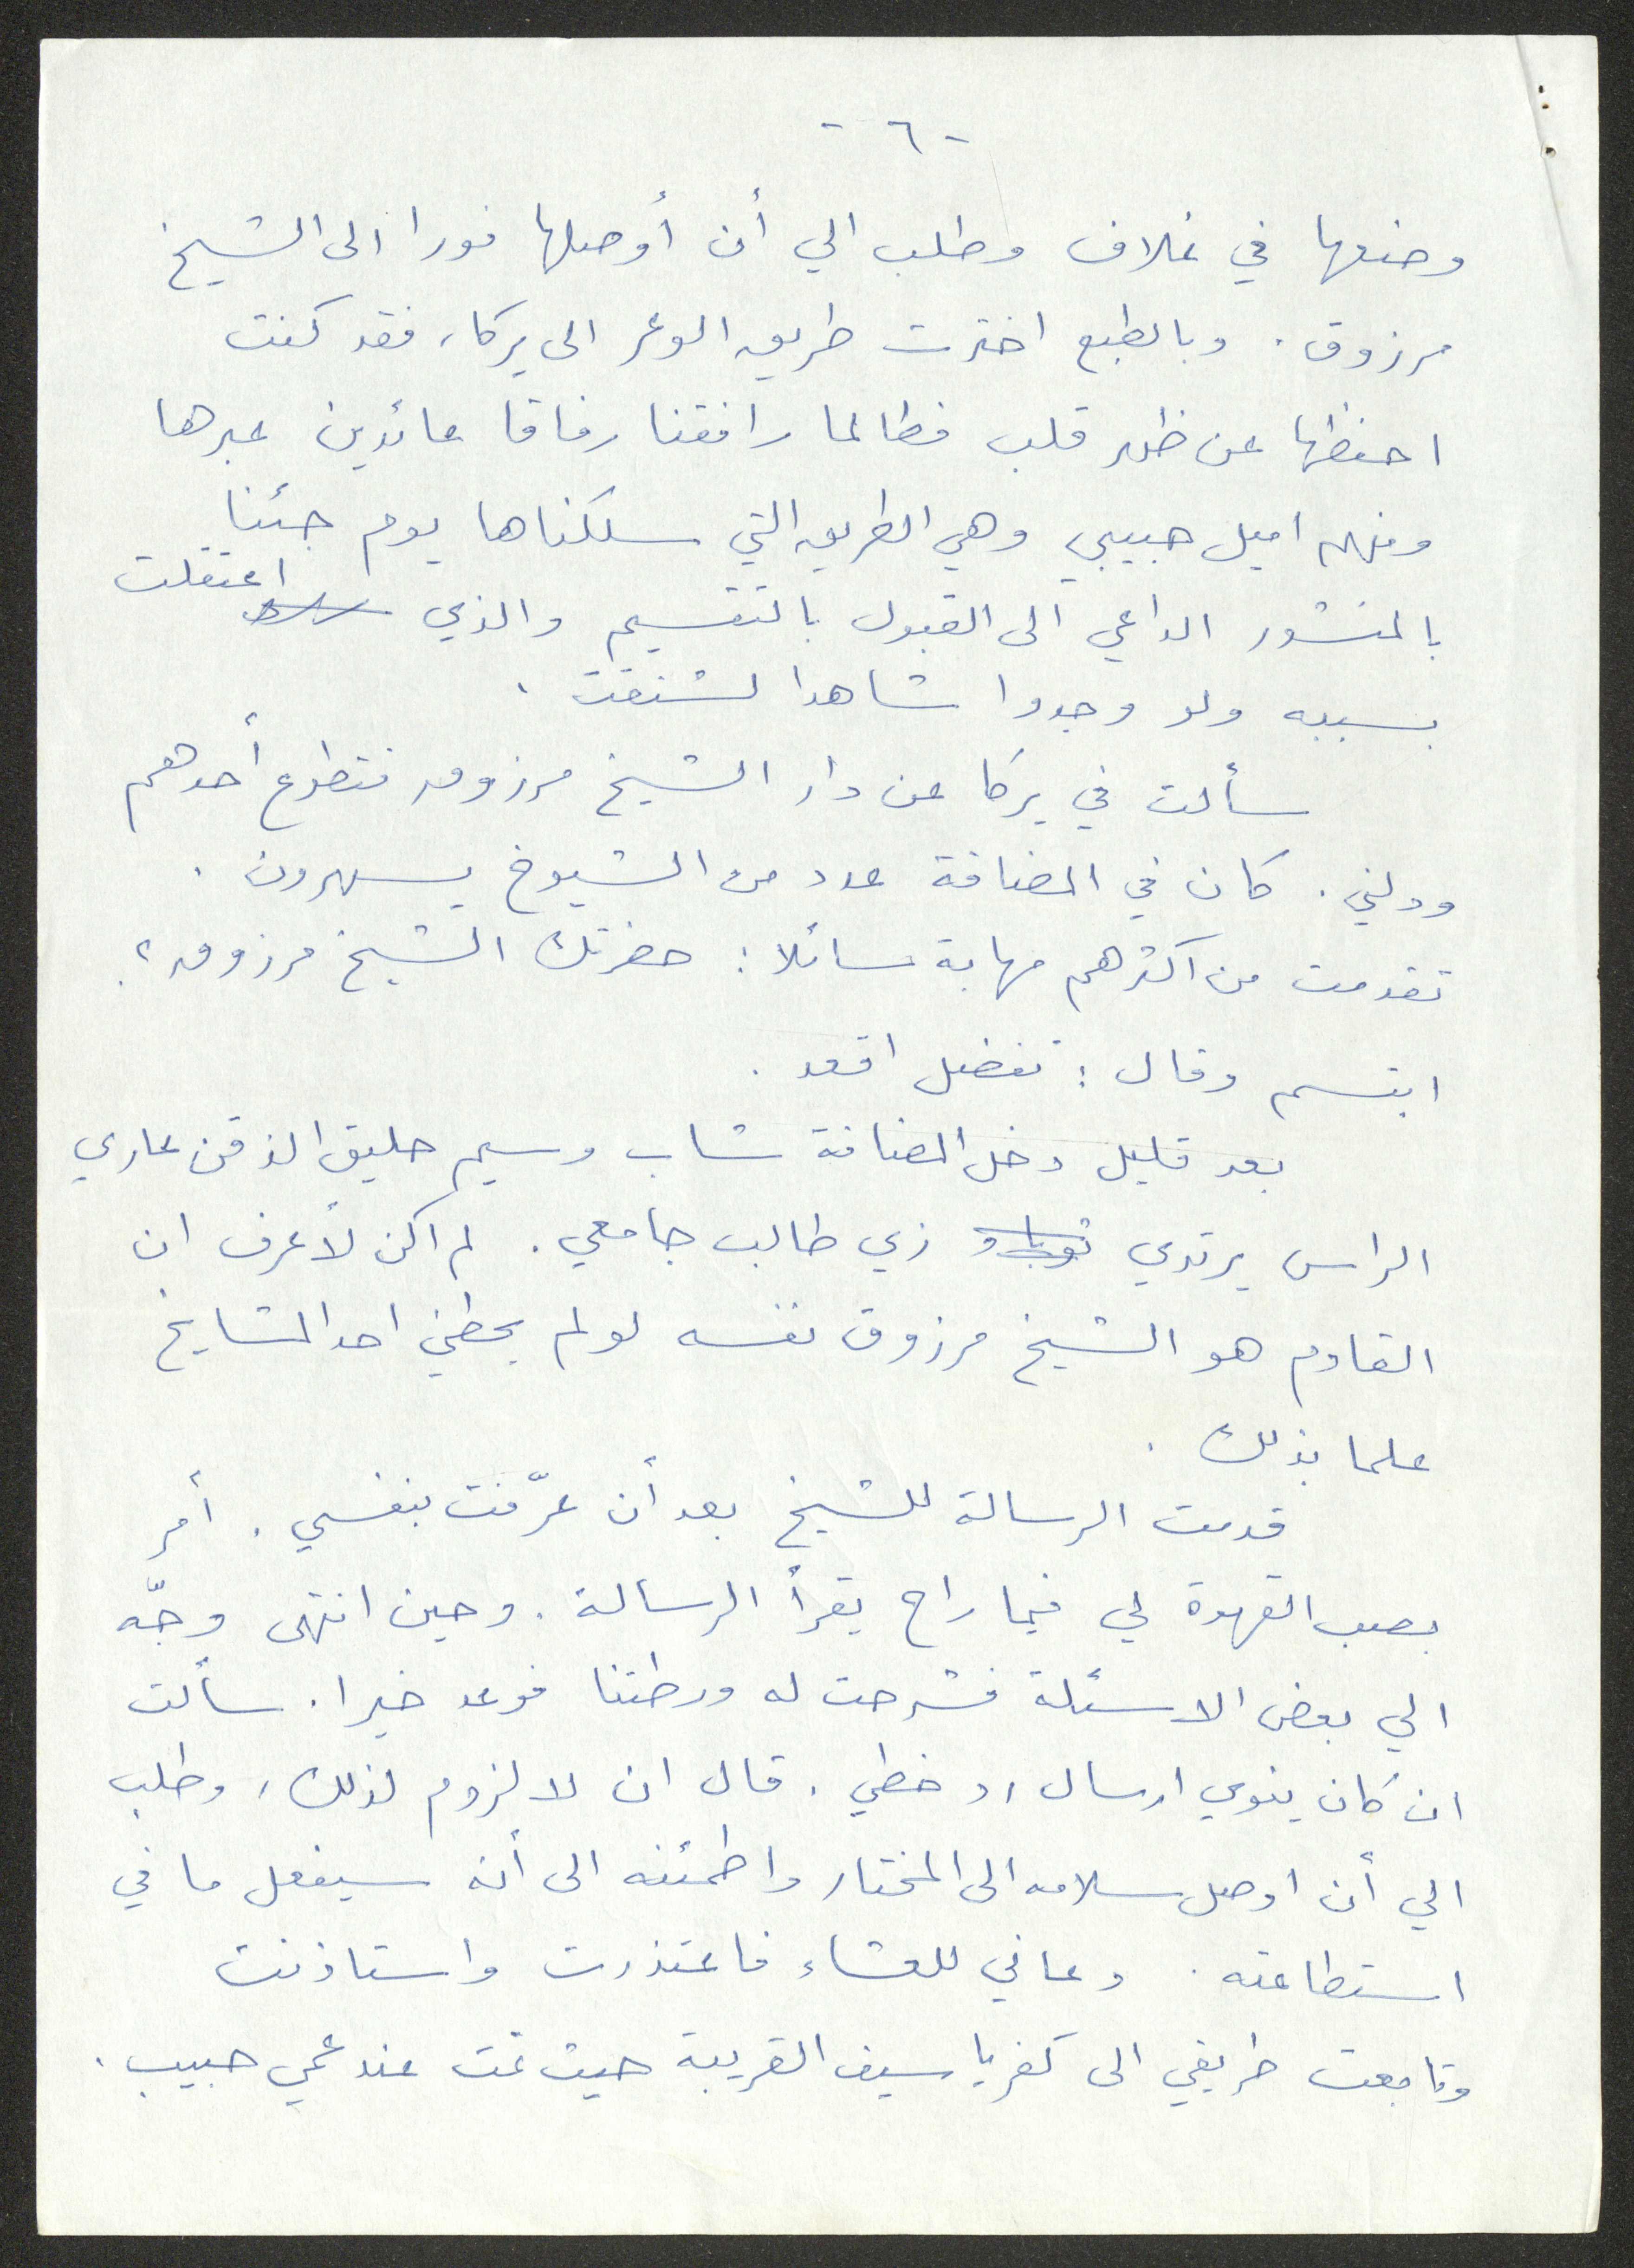 - ٦ -
وضعها في غلاف وطلب الي أن أوصلها فورا الى الشيخ
مرزوق. وبالطبع اخترت طريق الوعر الى يركا، فقد كنت
احفظها عن ظهر قلب فطالما رافقنا رفاقا عائدين عبرها
ومنهم اميل حبيبي وهي الطريق التي سلكناها يوم جئنا
بالمنشور الداعي الى القبول بالتقسيم والذي اعتقلت
بسببه ولو وجدوا شاهدا لشنقت.
سألت في يركا عن دار الشيخ مرزوق فتطوع أحدهم
ودلني. كان في المضافة عدد من الشيوخ يسهرون.
تقدمت من اكثرهم مهابة سائلا: حضرتك الشيخ مرزوق؟
ابتسم وقال: تفضل اقعد.
بعد قليل دخل المضافة شاب وسيم حليق الذقن عاري
الراس يرتدي زي طالب جامعي. لم اكن لأعرف ان
القادم هو الشيخ مرزوق نفسه لو لم يحطني احد المشايخ
علما بذلك.
قدمت الرسالة للشيخ بعد أن عرّفت بنفسي. أمر
بصب القهوة لي فيما راح يقرأ الرسالة. وحين انتهى وجّه
الي بعض الاسئلة فشرحت له ورطتنا فوعد خيرا. سألت
ان كان ينوي ارسال رد خطي. قال ان لا لزوم لذلك، وطلب
الي أن اوصل سلامه الى المختار واطمئنه الى أنه سيفعل ما في
استطاعته. دعاني للعشاء فاعتذرت واستاذنت
وتابعت طريقي الى كفرياسيف القريبة حيث نمت عند عمي حبيب.